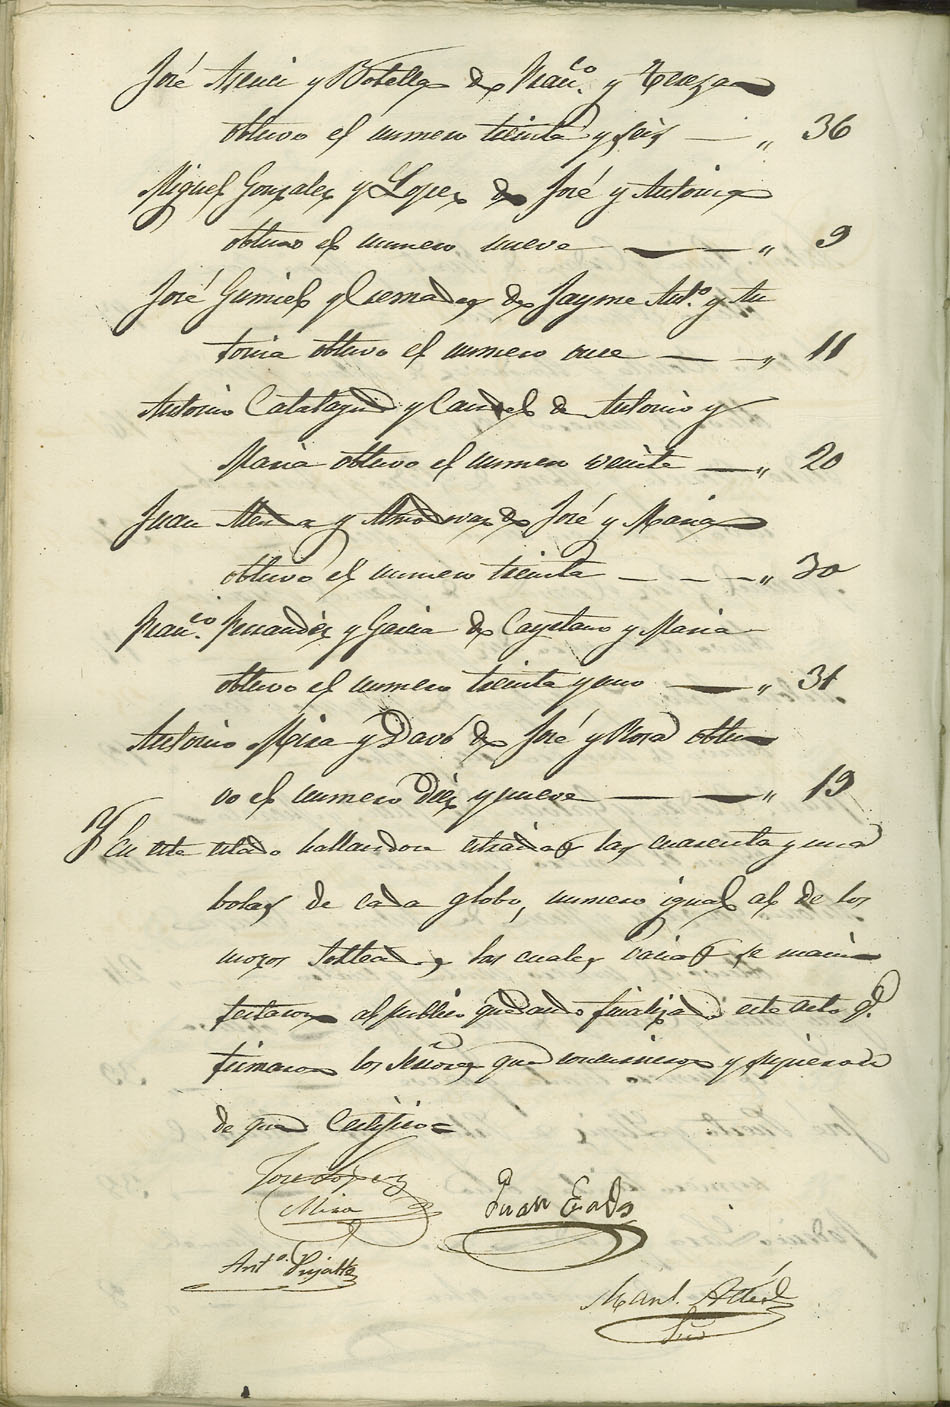 José Asensi y Botella de Fran.co y Tereza
obtuvo el numero treinta y seis — „ 36
Miguel Gonzalez y Lopez de José y Antonia
obtuvo el numero nueve — „ 9
José Gumiel y de Jayme Ant.o y An
tonia obtuvo el numero once — — „ 11
Antonio Catalayud y Candel de Antonio y
Maria obtuvo el numero veinte — „ 20
Juan y Almodovar de José y Maria
obtuvo el numero treinta — — — „ 30
Fran.co Fernandez y Garcia de Cayetano y Maria
obtuvo el numero treinta y uno — „ 31
Antonio Mira y Davó de José y Rosa obtu
vo el numero Diez y nueve — — „ 19
Y En este estado hallandose estraidas las cuarenta y una
bolas de cada globo, numero igual al de los
mozos Sorteados, las cuales vacias se mani
festaron al publico quedando finalizado este acto q.e
firmaron los Señores que concurrieron y supieron
de que Certifico =
José López
Mira
Juan
Ant.o Pujalte
Man.l
Srio